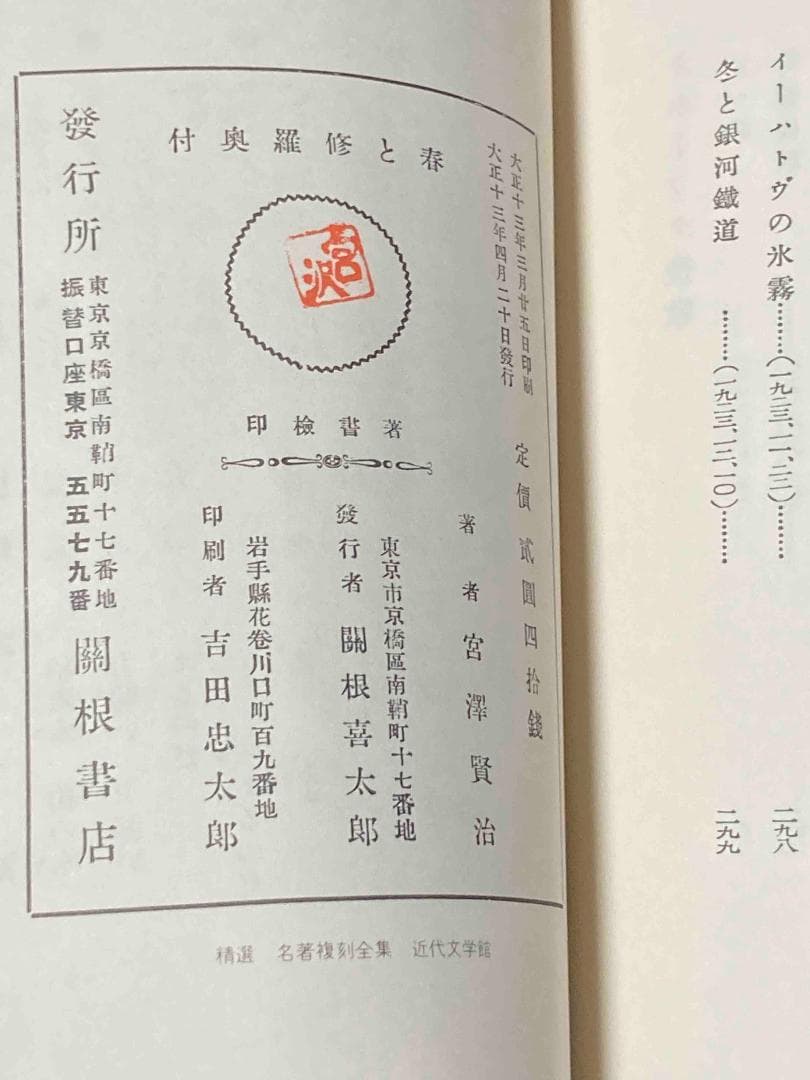 イーハトヴの氷霧………(一九二三、一一、二二)………二九八
冬と銀河鐵道………(一九二三、一二、一〇)………二九九
大正十三年三月廿五日印刷
大正十三年四月二十日發行
定價貳圓四拾錢
春と修羅奥付
宮沢
著書檢印
著者 宮澤賢治
東京市京橋區南鞘町十七番地
發行者 關根喜太郎
岩手縣花卷川口町百九番地
印刷者 吉田忠太郎
發行所
東京京橋區南鞘町十七番地
振替口座東京 五五七九番
關根書店
精選 名著複刻全集 近代文学館